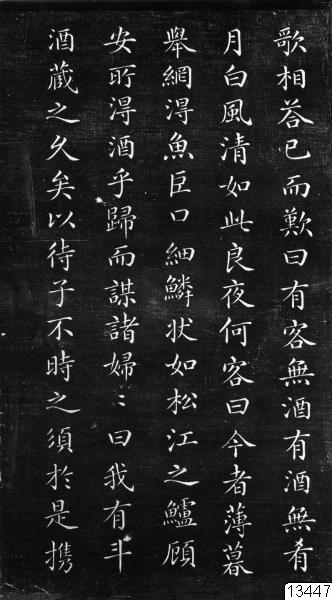 歌相荅已而歎曰有客無酒有酒無肴
月白風清如此良夜何客曰今者薄暮
舉網得魚巨口細鱗状如松江之鱸顧
安所得酒乎歸而謀諸婦〻曰我有斗
酒蔵之久矣以待子不時之須於是攜
13447